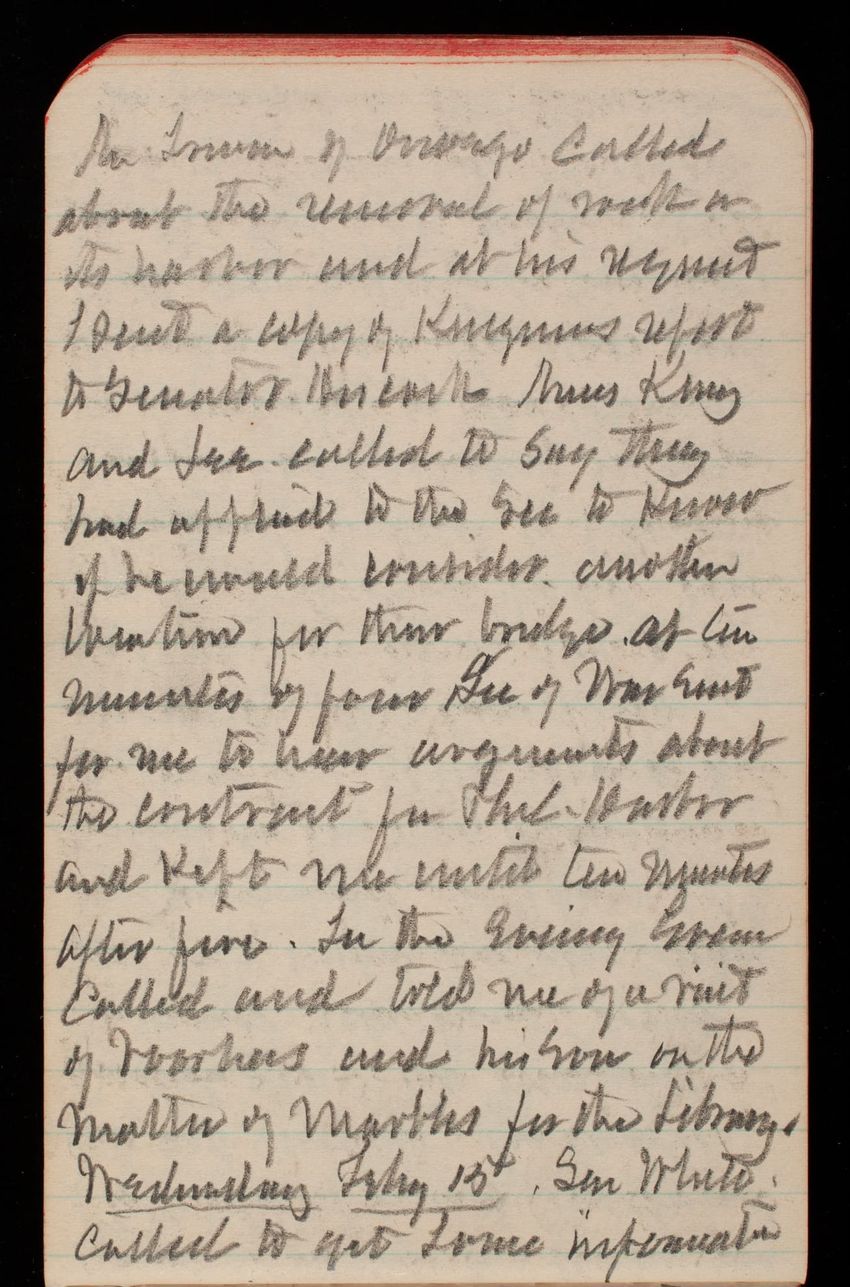 of Oswego Called
about the removal of rock in
its harbor and at his request
I sent a copy of report
to Senator Hiscock King
and Lee called to say they
had applied to the Sec to Know
if he would consider another
location for their bridge. at ten
minutes of four Sec of War sent
for me to hear arguments about
the contract for Phil. Harbor
and Kept me until ten minutes
after five. In the Evening Green
Called and told me of a visit
of Voorhees and his son on the
matter of Marbles for the Library.
Wednesday Feby 15. Gen White
called to get some information